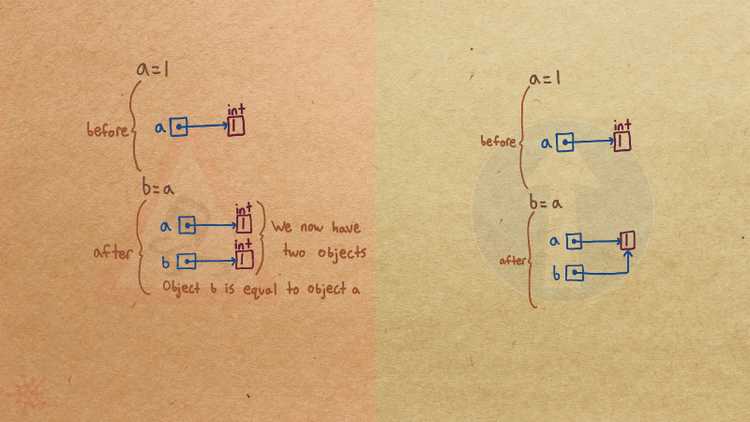 a=1
before
a
int
1
b=a
after
a
int
1
b
int
1
We now have
two objects
Object b is equal to object a
a=1
before
a
int
1
b=a
after
a
1
b